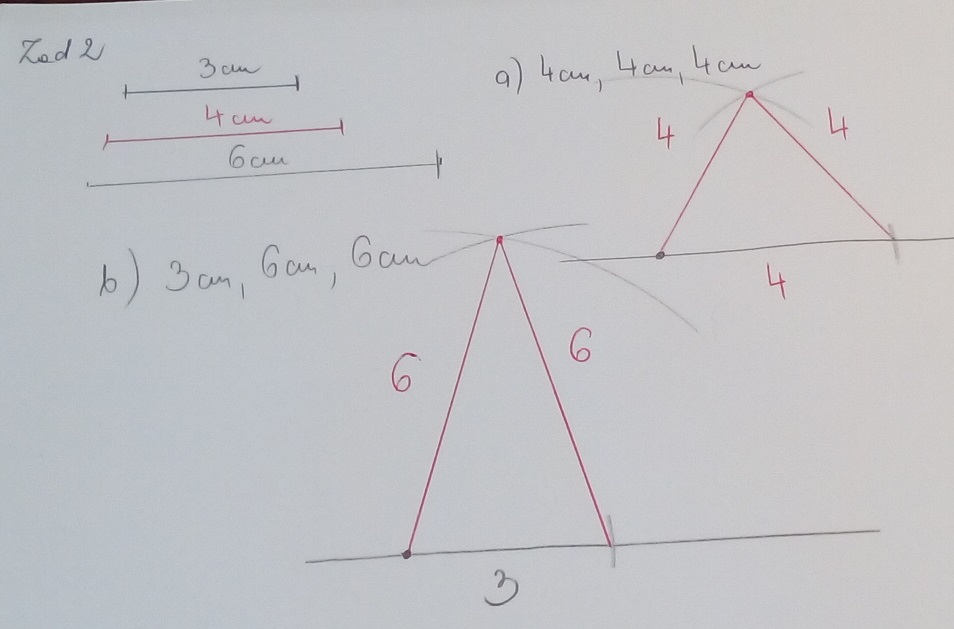 Zad 2
3cm
4cm
6cm
a) 4cm, 4cm, 4cm
4
4
4
b) 3cm, 6cm, 6cm
6
6
3